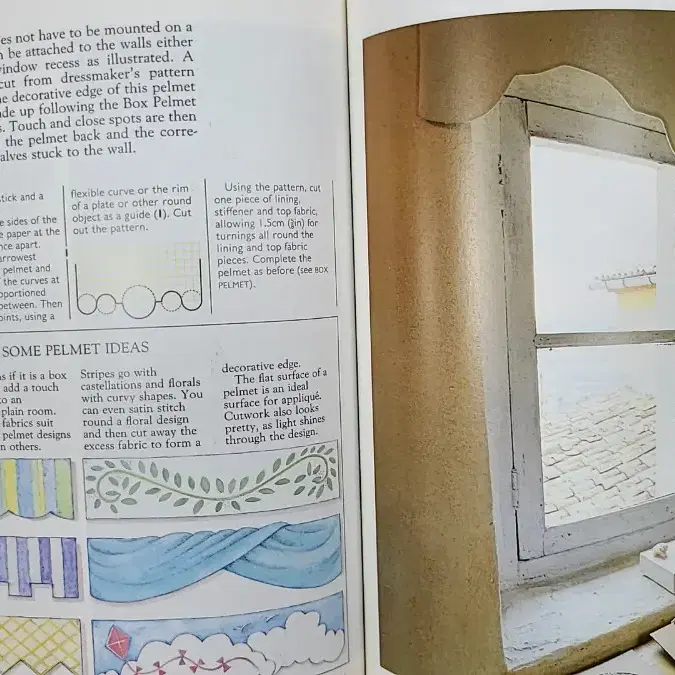 es not have to be mounted on a
be attached to the walls either
window recess as illustrated. A
cut from dressmaker's pattern
e decorative edge of this pelmet
de up following the Box Pelmet
. Touch and close spots are then
the pelmet back and the corre-
alves stuck to the wall.
stick and a
e sides of the
paper at the
nce apart.
arrowest
pelmet and
the curves at
oportioned
between. Then
oints, using a
flexible curve or the rim
of a plate or other round
object as a guide (1). Cut
out the pattern.
Using the pattern, cut
one piece of lining,
stiffener and top fabric,
allowing 1.5cm (⅝in) for
turnings all round the
lining and top fabric
pieces. Complete the
pelmet as before (see BOX
PELMET).
SOME PELMET IDEAS
s if it is a box
add a touch
to an
plain room.
fabrics suit
pelmet designs
n others.
Stripes go with
castellations and florals
with curvy shapes. You
can even satin stitch
round a floral design
and then cut away the
excess fabric to form a
decorative edge.
The flat surface of a
pelmet is an ideal
surface for appliqué.
Cutwork also looks
pretty, as light shines
through the design.